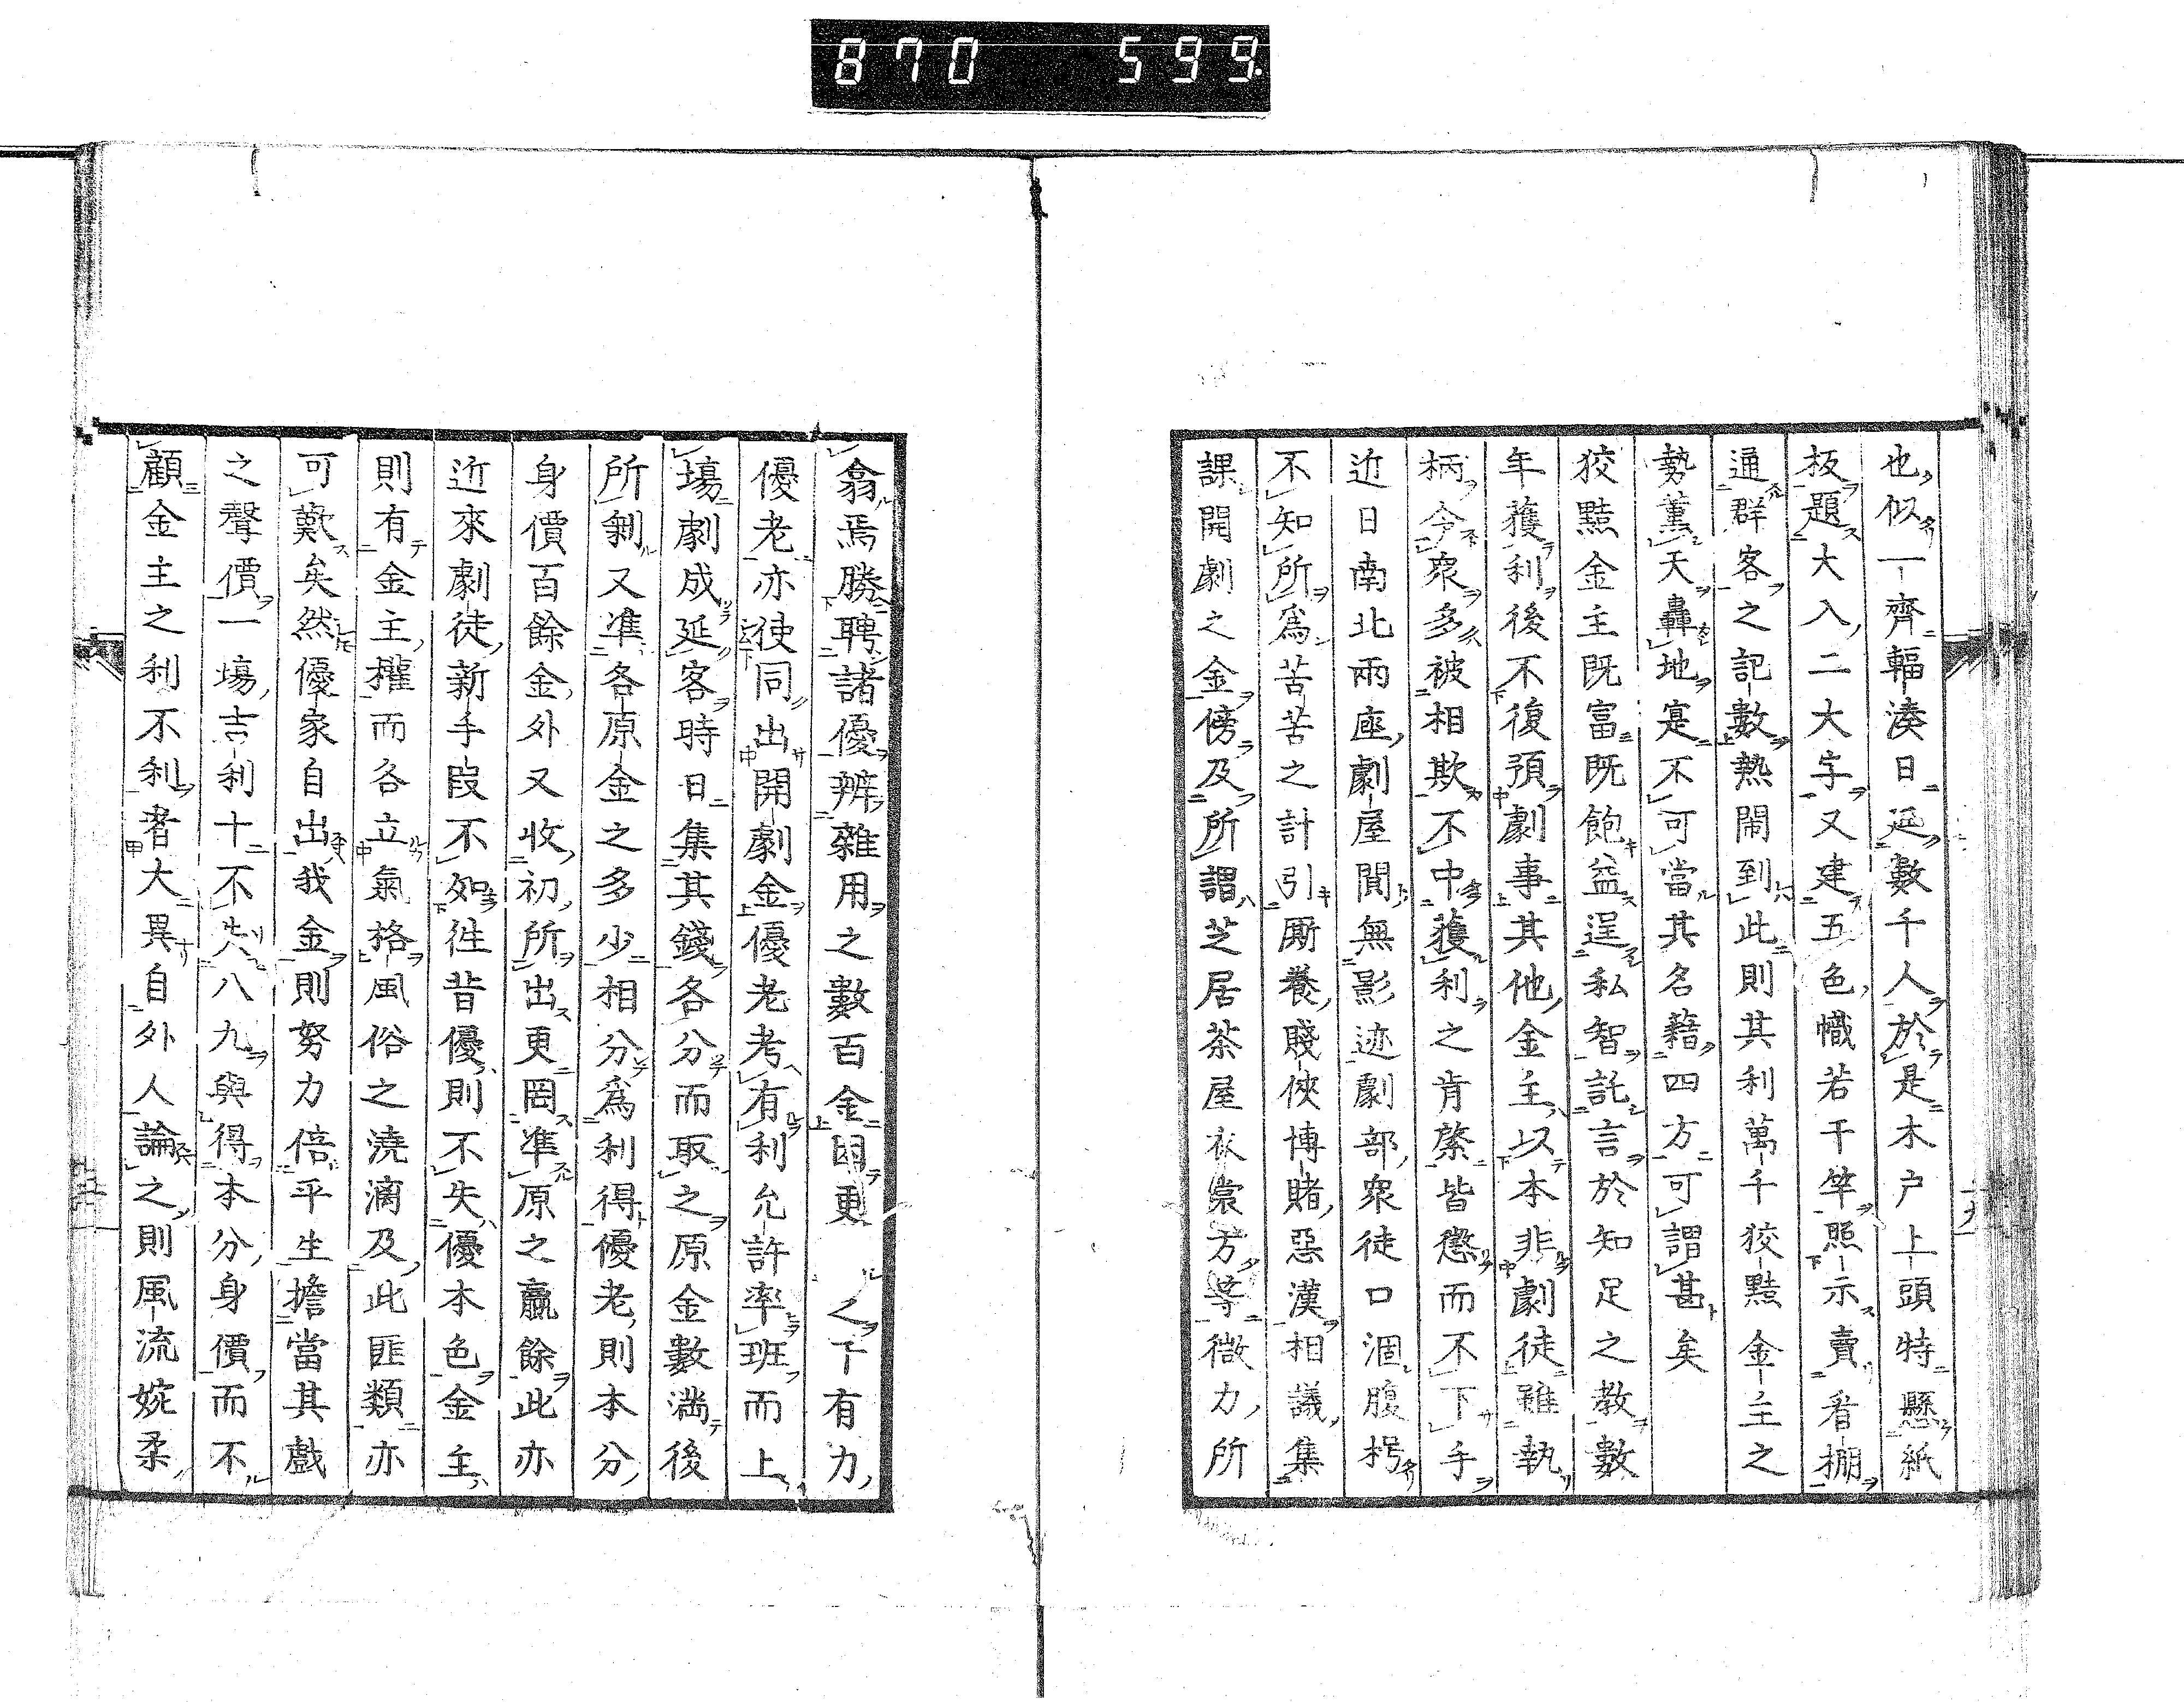 870 599
也似一齊輻湊日延數千人於是木戸上頭特懸紙
板題大入二大字又建五色幟若干竿照示賣看棚
通群客之記數熱閙到此則其利萬千狡黠金主之
勢薰天轟地寔不可當其名藉四方可謂甚矣
狡黠金主既富既飽益逞私智託言於知足之教數
年獲利後不復預劇事其他金主以本非劇徒雖執
柄今衆多被相欺不中獲利之肯綮皆懲而不下手
近日南北兩座劇屋閴無影迹劇部衆徒口涸腹枵
不知所爲苦苦之計引厮養賤俠博賭惡漢相議集
課開劇之金傍及所謂芝居茶屋衣裳方等微力所
翕焉勝聘諸優辨雜用之數百金因更之下有力
優老亦使同出開劇金優老考有利允許率班而上
塲劇成延客時日集其錢各分而取之原金數満後
所剰又準各原金之多少相分爲利得優老則本分
身價百餘金外又收初所出更罔準原之贏餘此亦
近來劇徒新手段不如徃昔優則不失優本色金主
則有金主權而各立氣格風俗之澆漓及此匪類亦
可歎矣然優家自出我金則努力倍平生擔當其戲
之聲價一塲吉利十不失八九與得本分身價而不
顧金主之利不利者大異自外人論之則風流婉柔